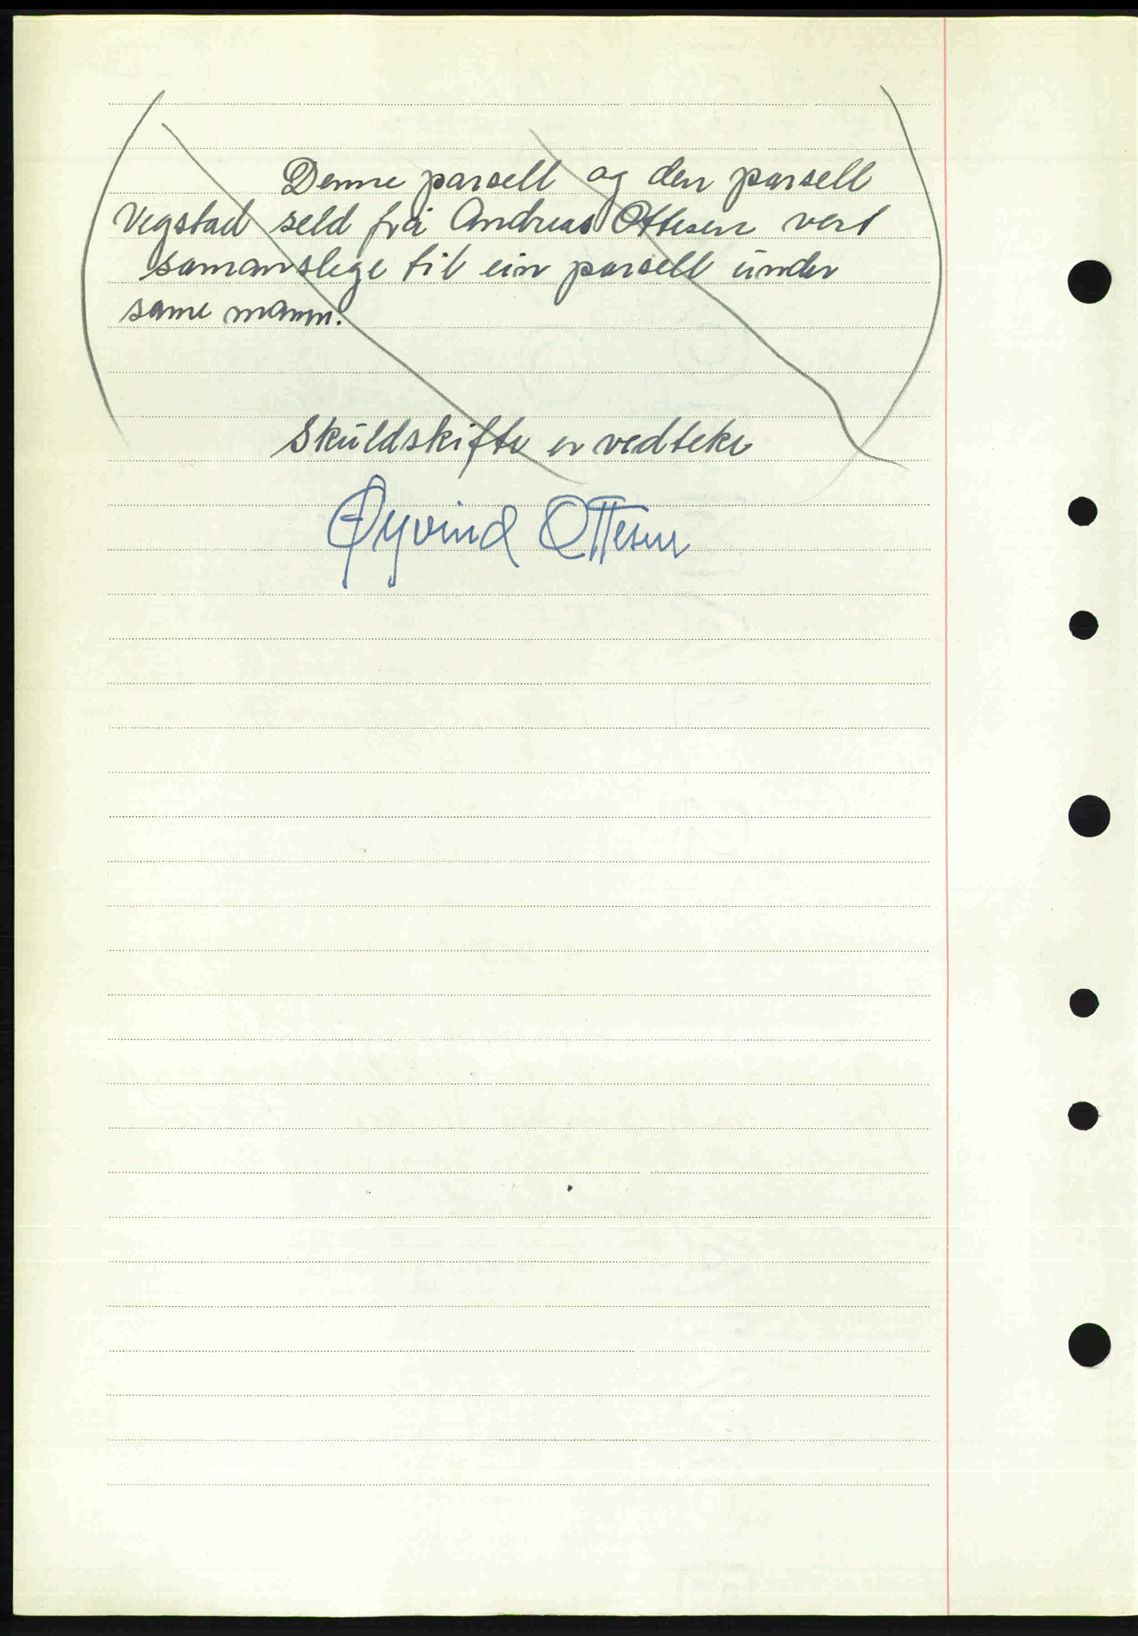 Denne parsell og den parsell
Vegstad seld frå Andreas Ottesen vert
samanslege til ein parsell under
same mann.
Skuldskifte er vedteke
Øyvind Ottesen